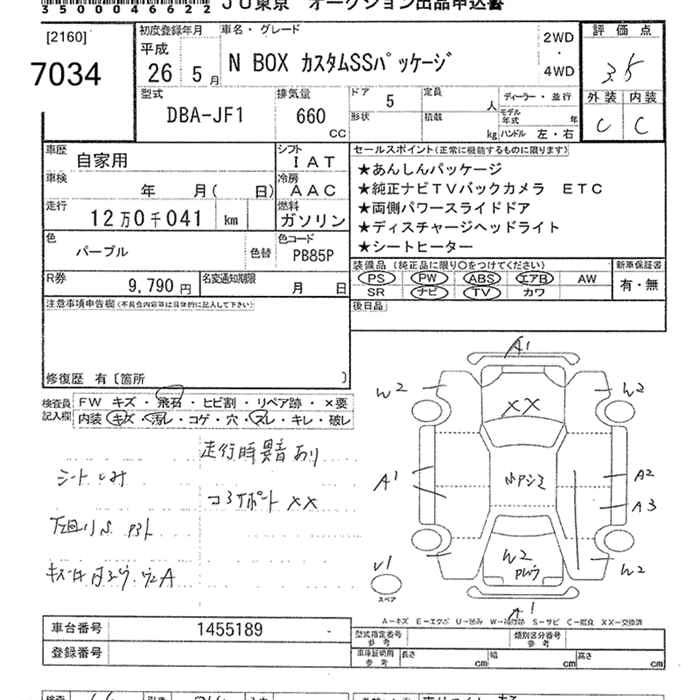 35000046622 JU東京 オークション出品申込書
[2160]
7034
初度登録年月
平成
26 5月
車名・グレード
N BOX カスタムSSパッケージ
2WD
・
4WD
評価点
3.5
外装 内装
C C
型式
DBA-JF1
排気量
660
CC
ドア 5
形状
定員 人
積載 kg
ディーラー・並行
モデル年式 年
ハンドル 左・右
車歴 自家用
シフト IAT
車検 年 月( 日)
冷房 AAC
走行 12万0千041 km
燃料 ガソリン
色 パープル 色替
色コード PB85P
R券 9,790円
名変通知期限 月 日
セールスポイント(正常に機能するものに限ります)
★あんしんパッケージ
★純正ナビTVバックカメラ ETC
★両側パワースライドドア
★ディスチャージヘッドライト
★シートヒーター
装備品(純正品に限り○をつけてください)
PS PW ABS エアB AW
SR ナビ TV カワ
新車保証書
有・無
後日品
注意事項申告欄(不具合内容等は具体的に記入して下さい)
修復歴 有〔箇所 〕
検査員記入欄
FW キズ・飛石・ヒビ割・リペア跡・×要
内装 キズ・汚レ・コゲ・穴・スレ・キレ・破レ
走行時異音あり
シートしみ
コアサポート XX
下廻りS
A1
W2
W2
XX
A1
A2
A3
W2
W2
V1
スペア
A1
A-キズ E-エクボ U-凹み W-補修跡 S-サビ C-腐食 XX-交換済
車台番号 1455189
登録番号
型式指定番号 参考
類別区分番号 参考
車庫証明用 参考 長さ cm 幅 cm 高さ cm